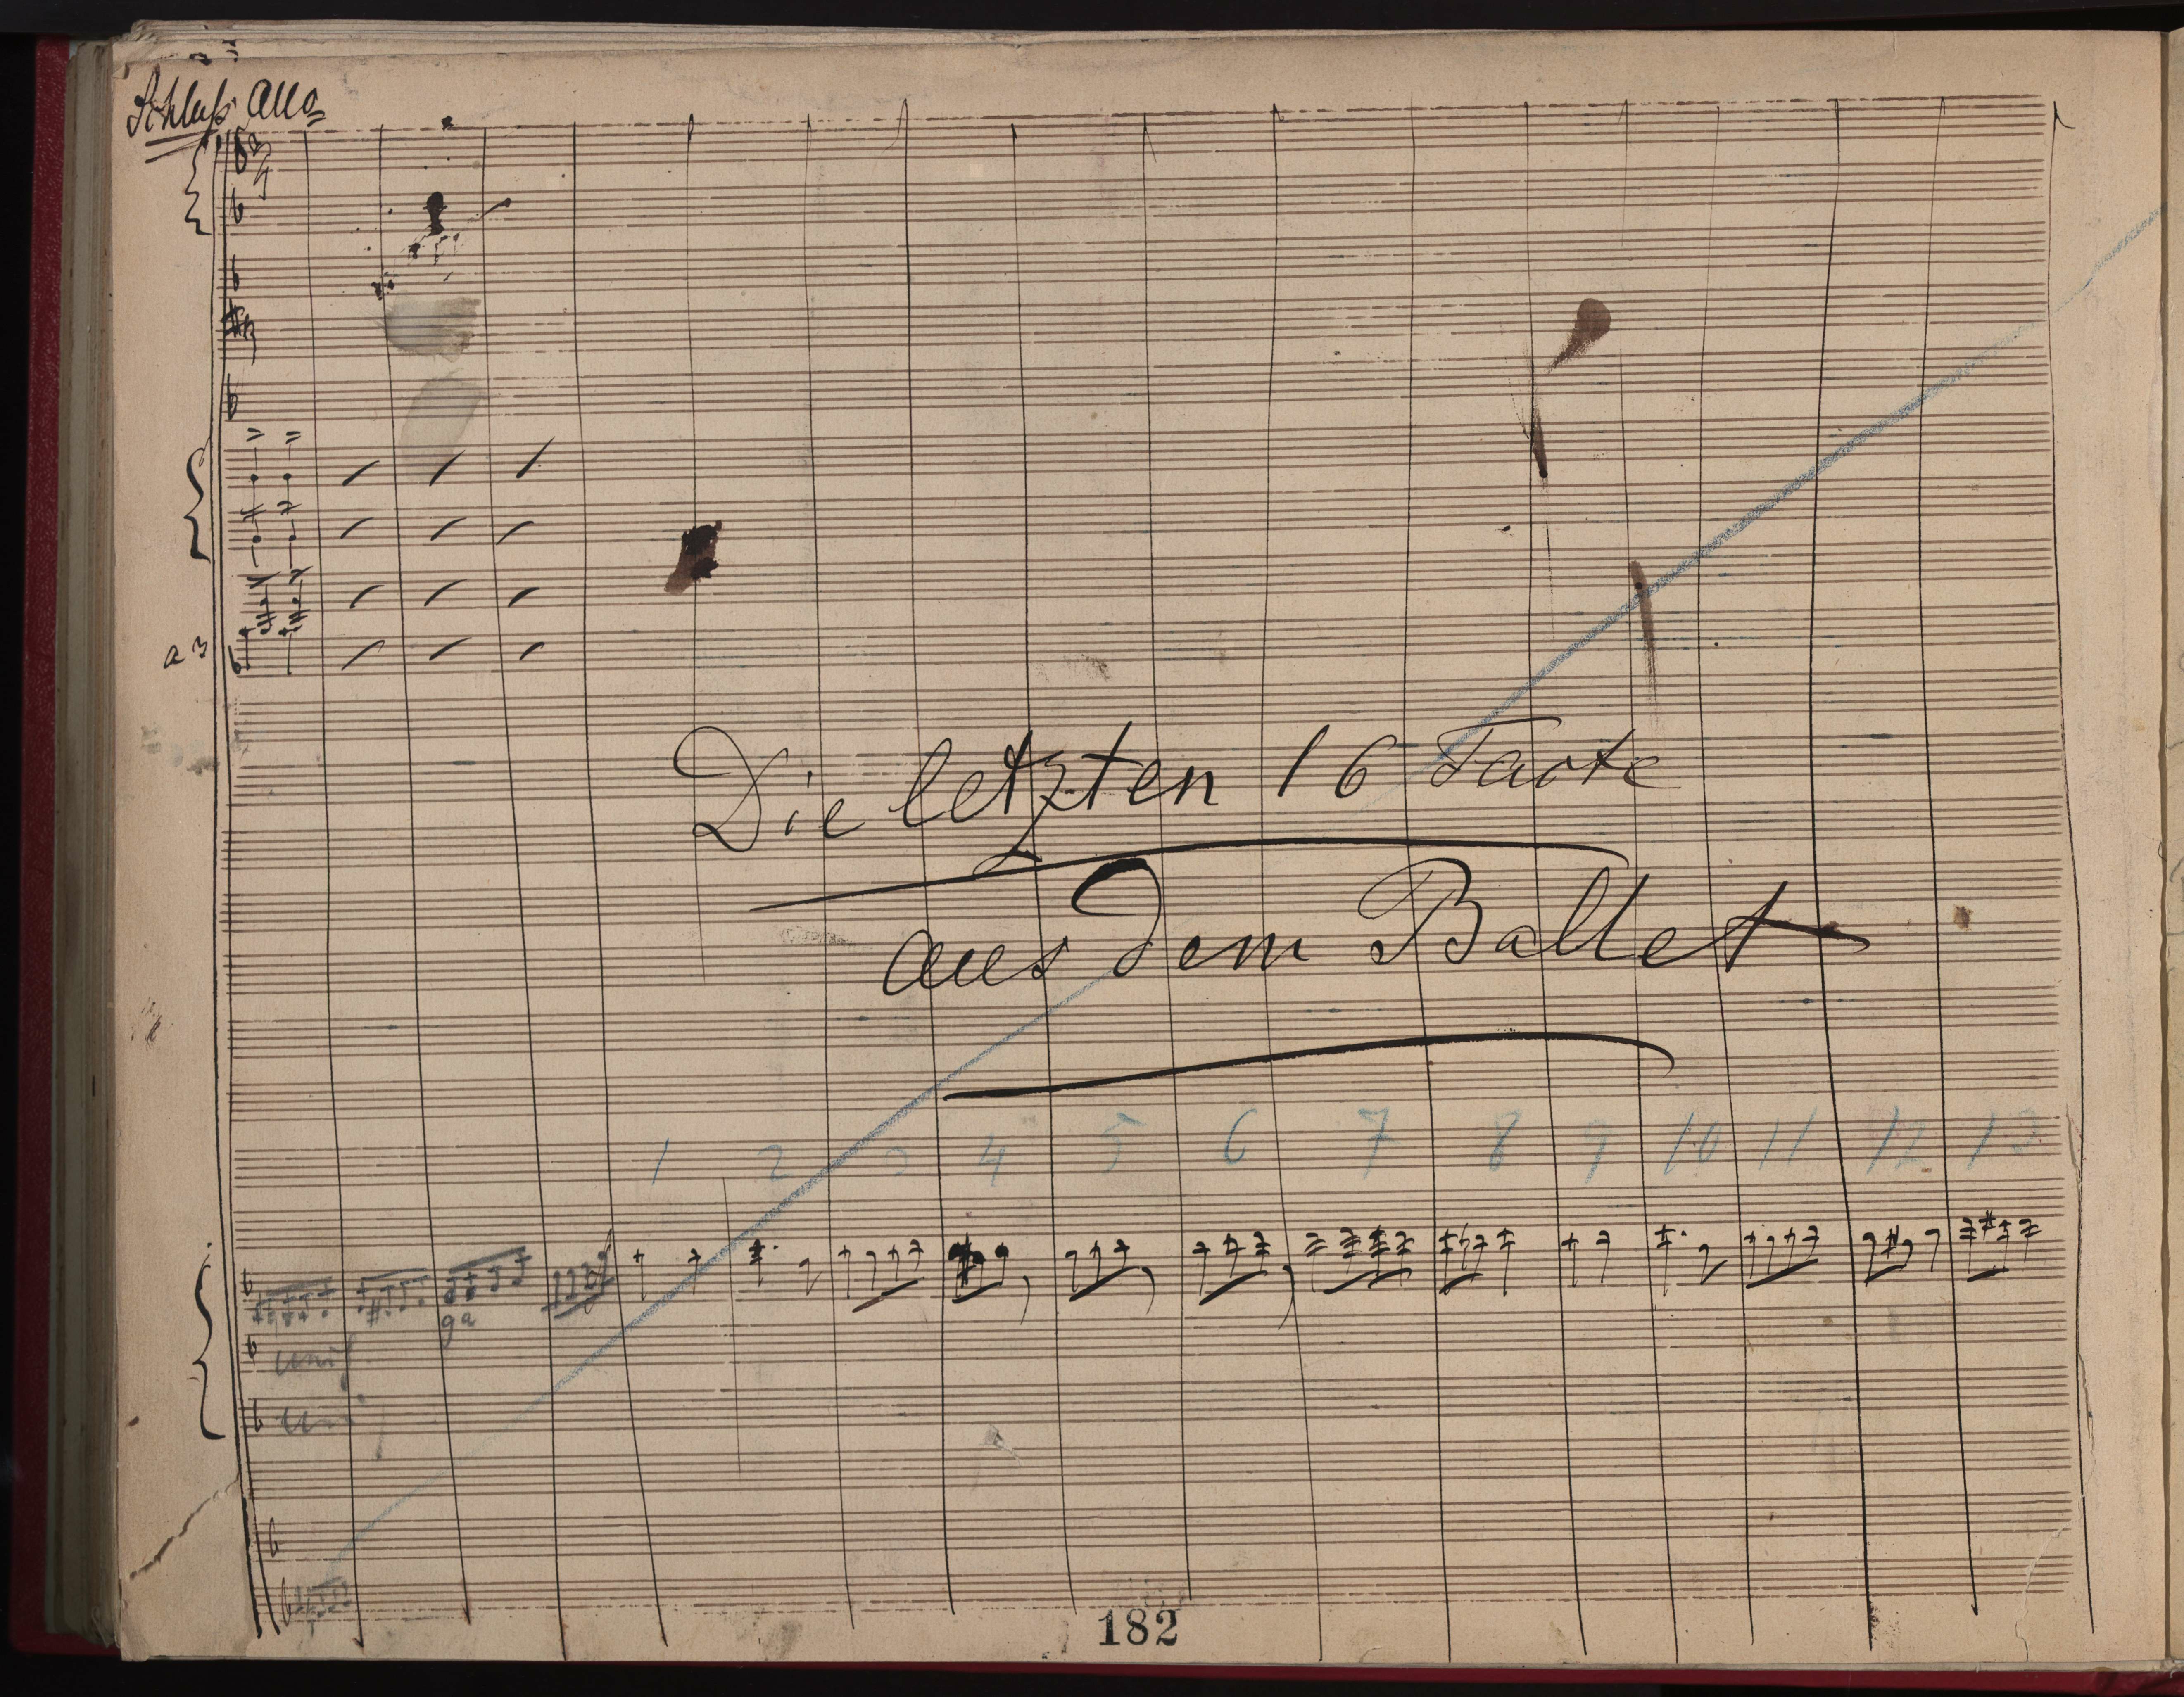 Schluß Allo
a 3
Die letzten 16 Tacte
aus dem Ballet
1 2 3 4 5 6 7 8 9 10 11 12 13
ga
unis
uni
182